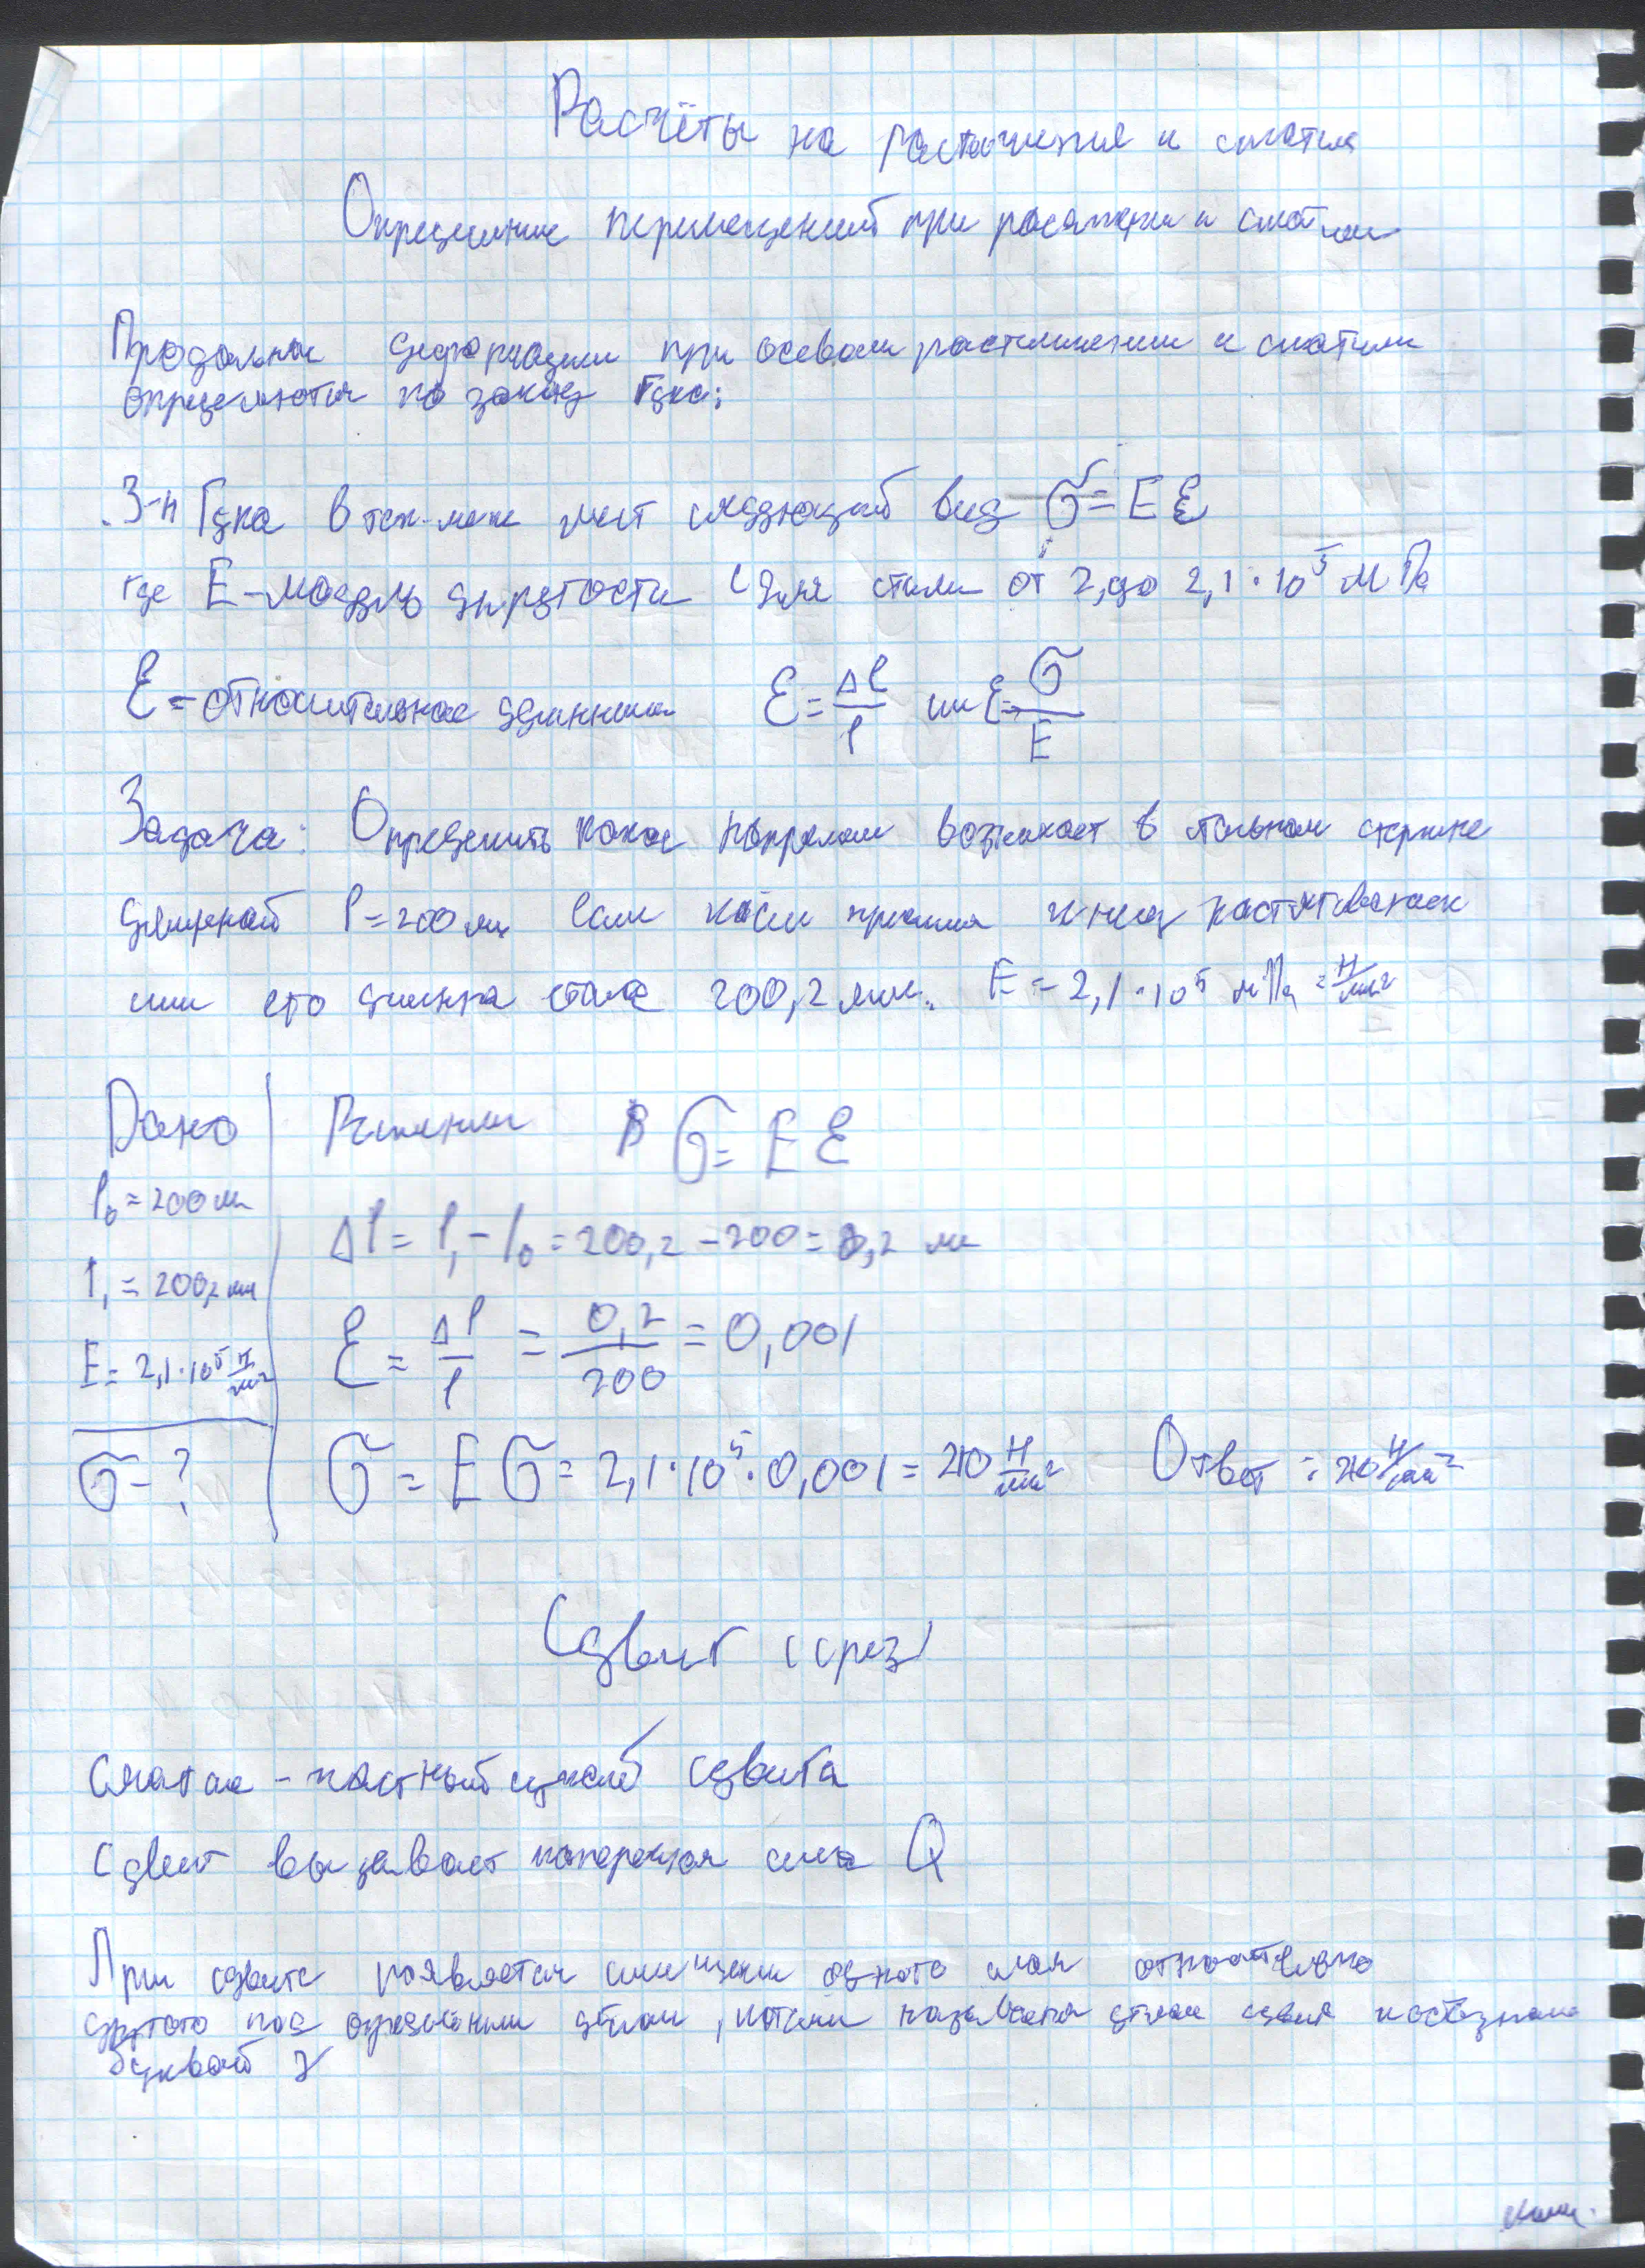 Расчёты на растяжения и сжатия
Определение перемещений при растяжении и сжатии
Продольные деформации при осевом растяжении и сжатии
определяются по закону Гука:
З-н Гука в тех-мех имеет следующий вид σ = E ε
где E - модуль упругости (для стали от 2, до 2,1 · 10⁵ МПа
ε - относительное удлинение ε = Δl/l или ε = σ/E
Задача: Определить какое напряжен возникает в стальном стержне
длинной l = 200 мм если после приложения к нему растягивающей
силы его длинна стала 200,2 мм. E = 2,1 · 10⁵ мПа = Н/мм²
Дано Решение σ = E ε
l₀ = 200 мм
Δl = l₁ - l₀ = 200,2 - 200 = 0,2 мм
l₁ = 200,2 мм
ε = Δl/l = 0,2/200 = 0,001
E = 2,1 · 10⁵ Н/мм²
σ - ? σ = E σ = 2,1 · 10⁵ · 0,001 = 210 Н/мм² Ответ : 210 Н/мм²
Сдвиг (срез)
- частный случай сдвига
Сдвиг вызывает поперечная сила Q
При сдвиге появляется смещение одного слоя относительно
другого под определённым углом, который называется углом сдвига и обозначается
буквой γ